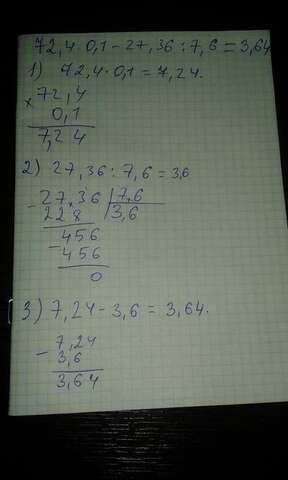 72,4·0,1-27,36:7,6=3,64
1) 72,4·0,1=7,24.
× 72,4
0,1
7,24
2) 27,36:7,6=3,6
- 27,36 |7,6
228 3,6
456
- 456
0
3) 7,24-3,6=3,64.
- 7,24
3,6
3,64